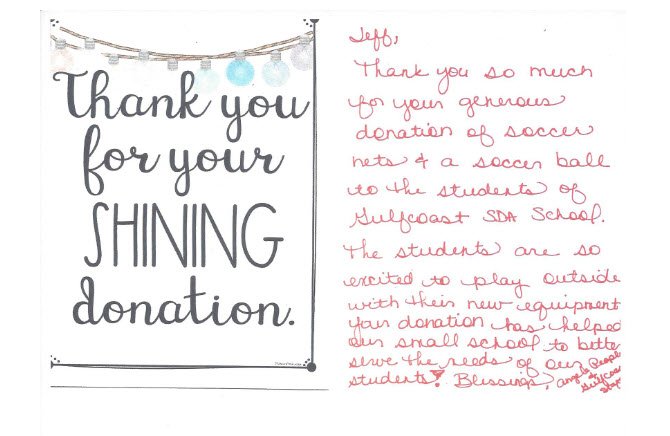 Thank you
for your
SHINING
donation.
Jeff,
Thank you so much
for your generous
donation of soccer
nets & a soccer ball
to the students of
Gulfcoast SDA School.
The students are so
excited to play outside
with their new equipment
your donation has helped
our small school to better
serve the needs of our
students! Blessings,
Angela
&
Gulfcoast